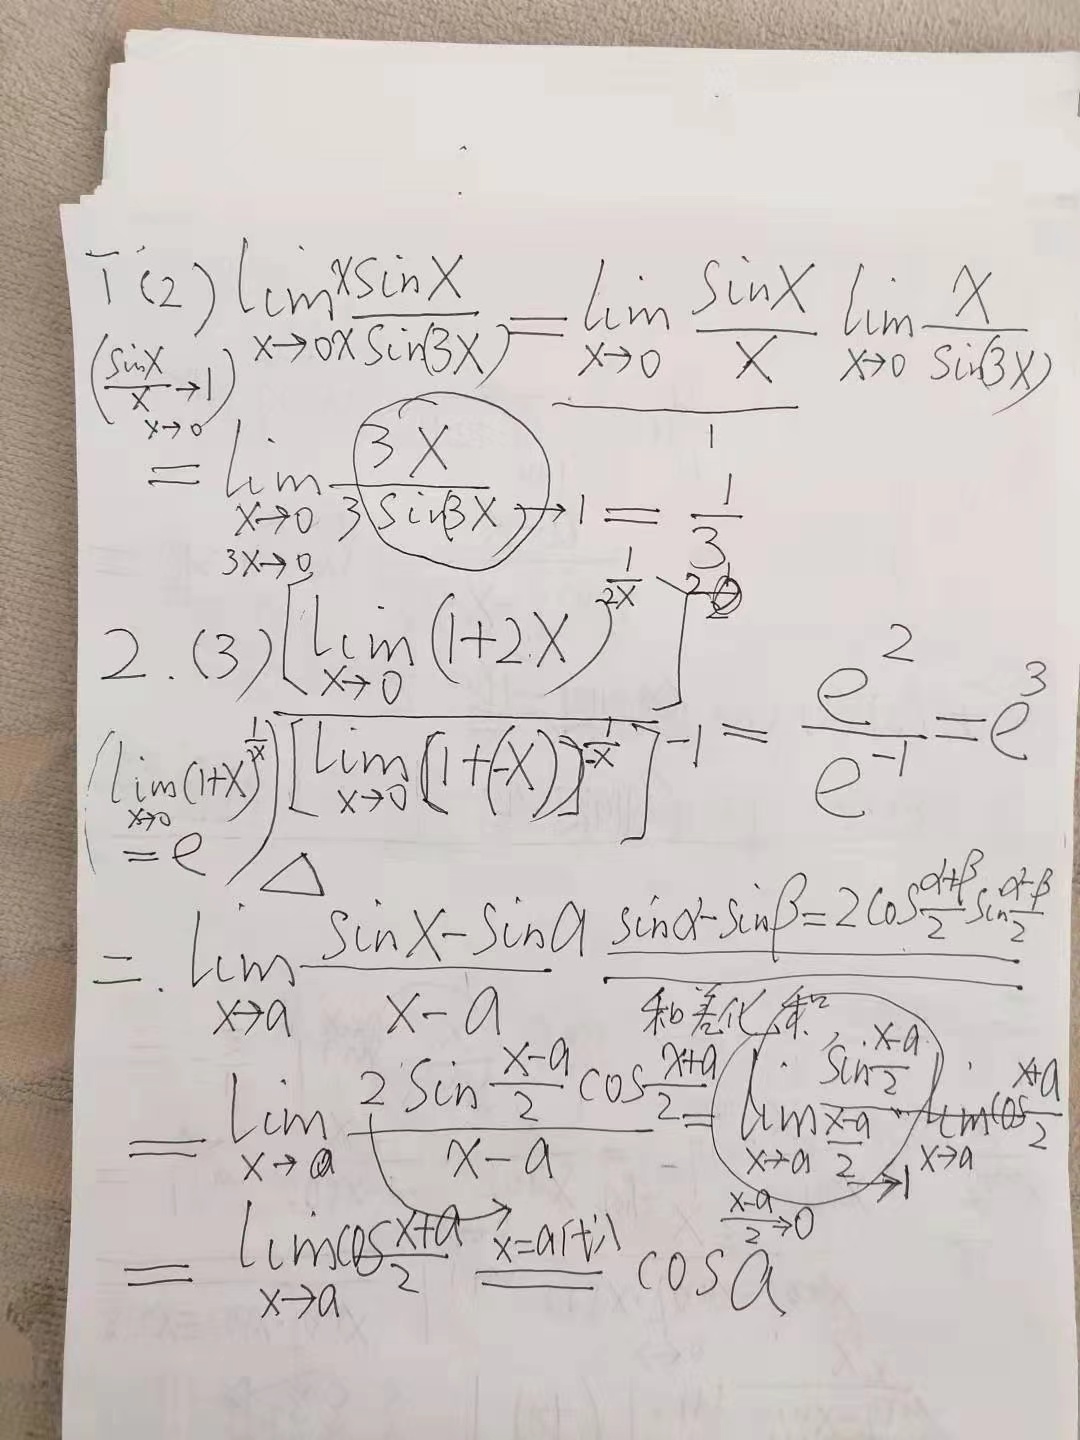 1 (2) lim x→0 x sinx / x sin(3x) = lim x→0 sinx / x lim x→0 x / sin(3x)
(sinx / x → 1 x→0) 1
= lim x→0 3x→0 3x / 3 sin3x → 1 = 1/3
2.(3) [lim x→0 (1+2x)^(1/2x)]^2 / [lim x→0 [1+(-x)]^(1/-x)]^-1 = e^2 / e^-1 = e^3
(lim x→0 (1+x)^(1/x) = e) △
二. lim x→a sinx-sina / x-a sinα-sinβ=2cos α+β/2 sin α-β/2
和差化积
= lim x→a 2 sin x-a/2 cos x+a/2 / x-a = lim x→a sin x-a/2 / x-a/2 →1 · lim x→a cos x+a/2
x-a/2 →0
= lim x→a cos x+a/2 x=a代入 = cosa